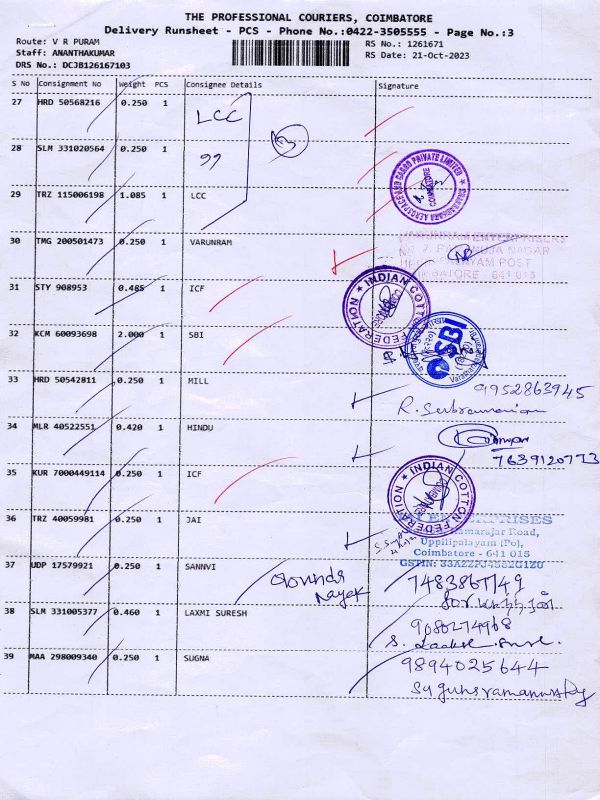 THE PROFESSIONAL COURIERS, COIMBATORE
Delivery Runsheet - PCS - Phone No.:0422-3505555 - Page No.:3
Route: V R PURAM
RS No.: 1261671
Staff: ANANTHAKUMAR
RS Date: 21-Oct-2023
DRS No.: DCJB126167103
S No Consignment No Weight PCS Consignee Details Signature
27 HRD 50568216 0.250 1 LCC
28 SLM 331020564 0.250 1 ,,
29 TRZ 115006198 1.085 1 LCC
AEROSPACE AND CARGO PRIVATE LIMITED
COIMBATORE
30 TMG 200501473 0.250 1 VARUNRAM
ENTERPRISERS
NAGAR
POST
641 015
31 STY 908953 0.485 1 ICF
INDIAN COTTON FEDERATION
32 KCM 60093698 2.000 1 SBI
SBI
33 HRD 50542811 0.250 1 MILL
9952863945
R. Subramanian
34 MLR 40522551 0.420 1 HINDU
7639120773
35 KUR 7000449114 0.250 1 ICF
INDIAN COTTON FEDERATION
36 TRZ 40059981 0.250 1 JAI
ENTERPRISES
Kamarajar Road,
Uppilipalayam (Po),
Coimbatore - 641 015
GSTIN:
37 UDP 17579921 0.250 1 SANNVI
Govinda
Nayak
38 SLM 331005377 0.460 1 LAXMI SURESH
9080274968
39 MAA 298009340 0.250 1 SUGNA
9894025644